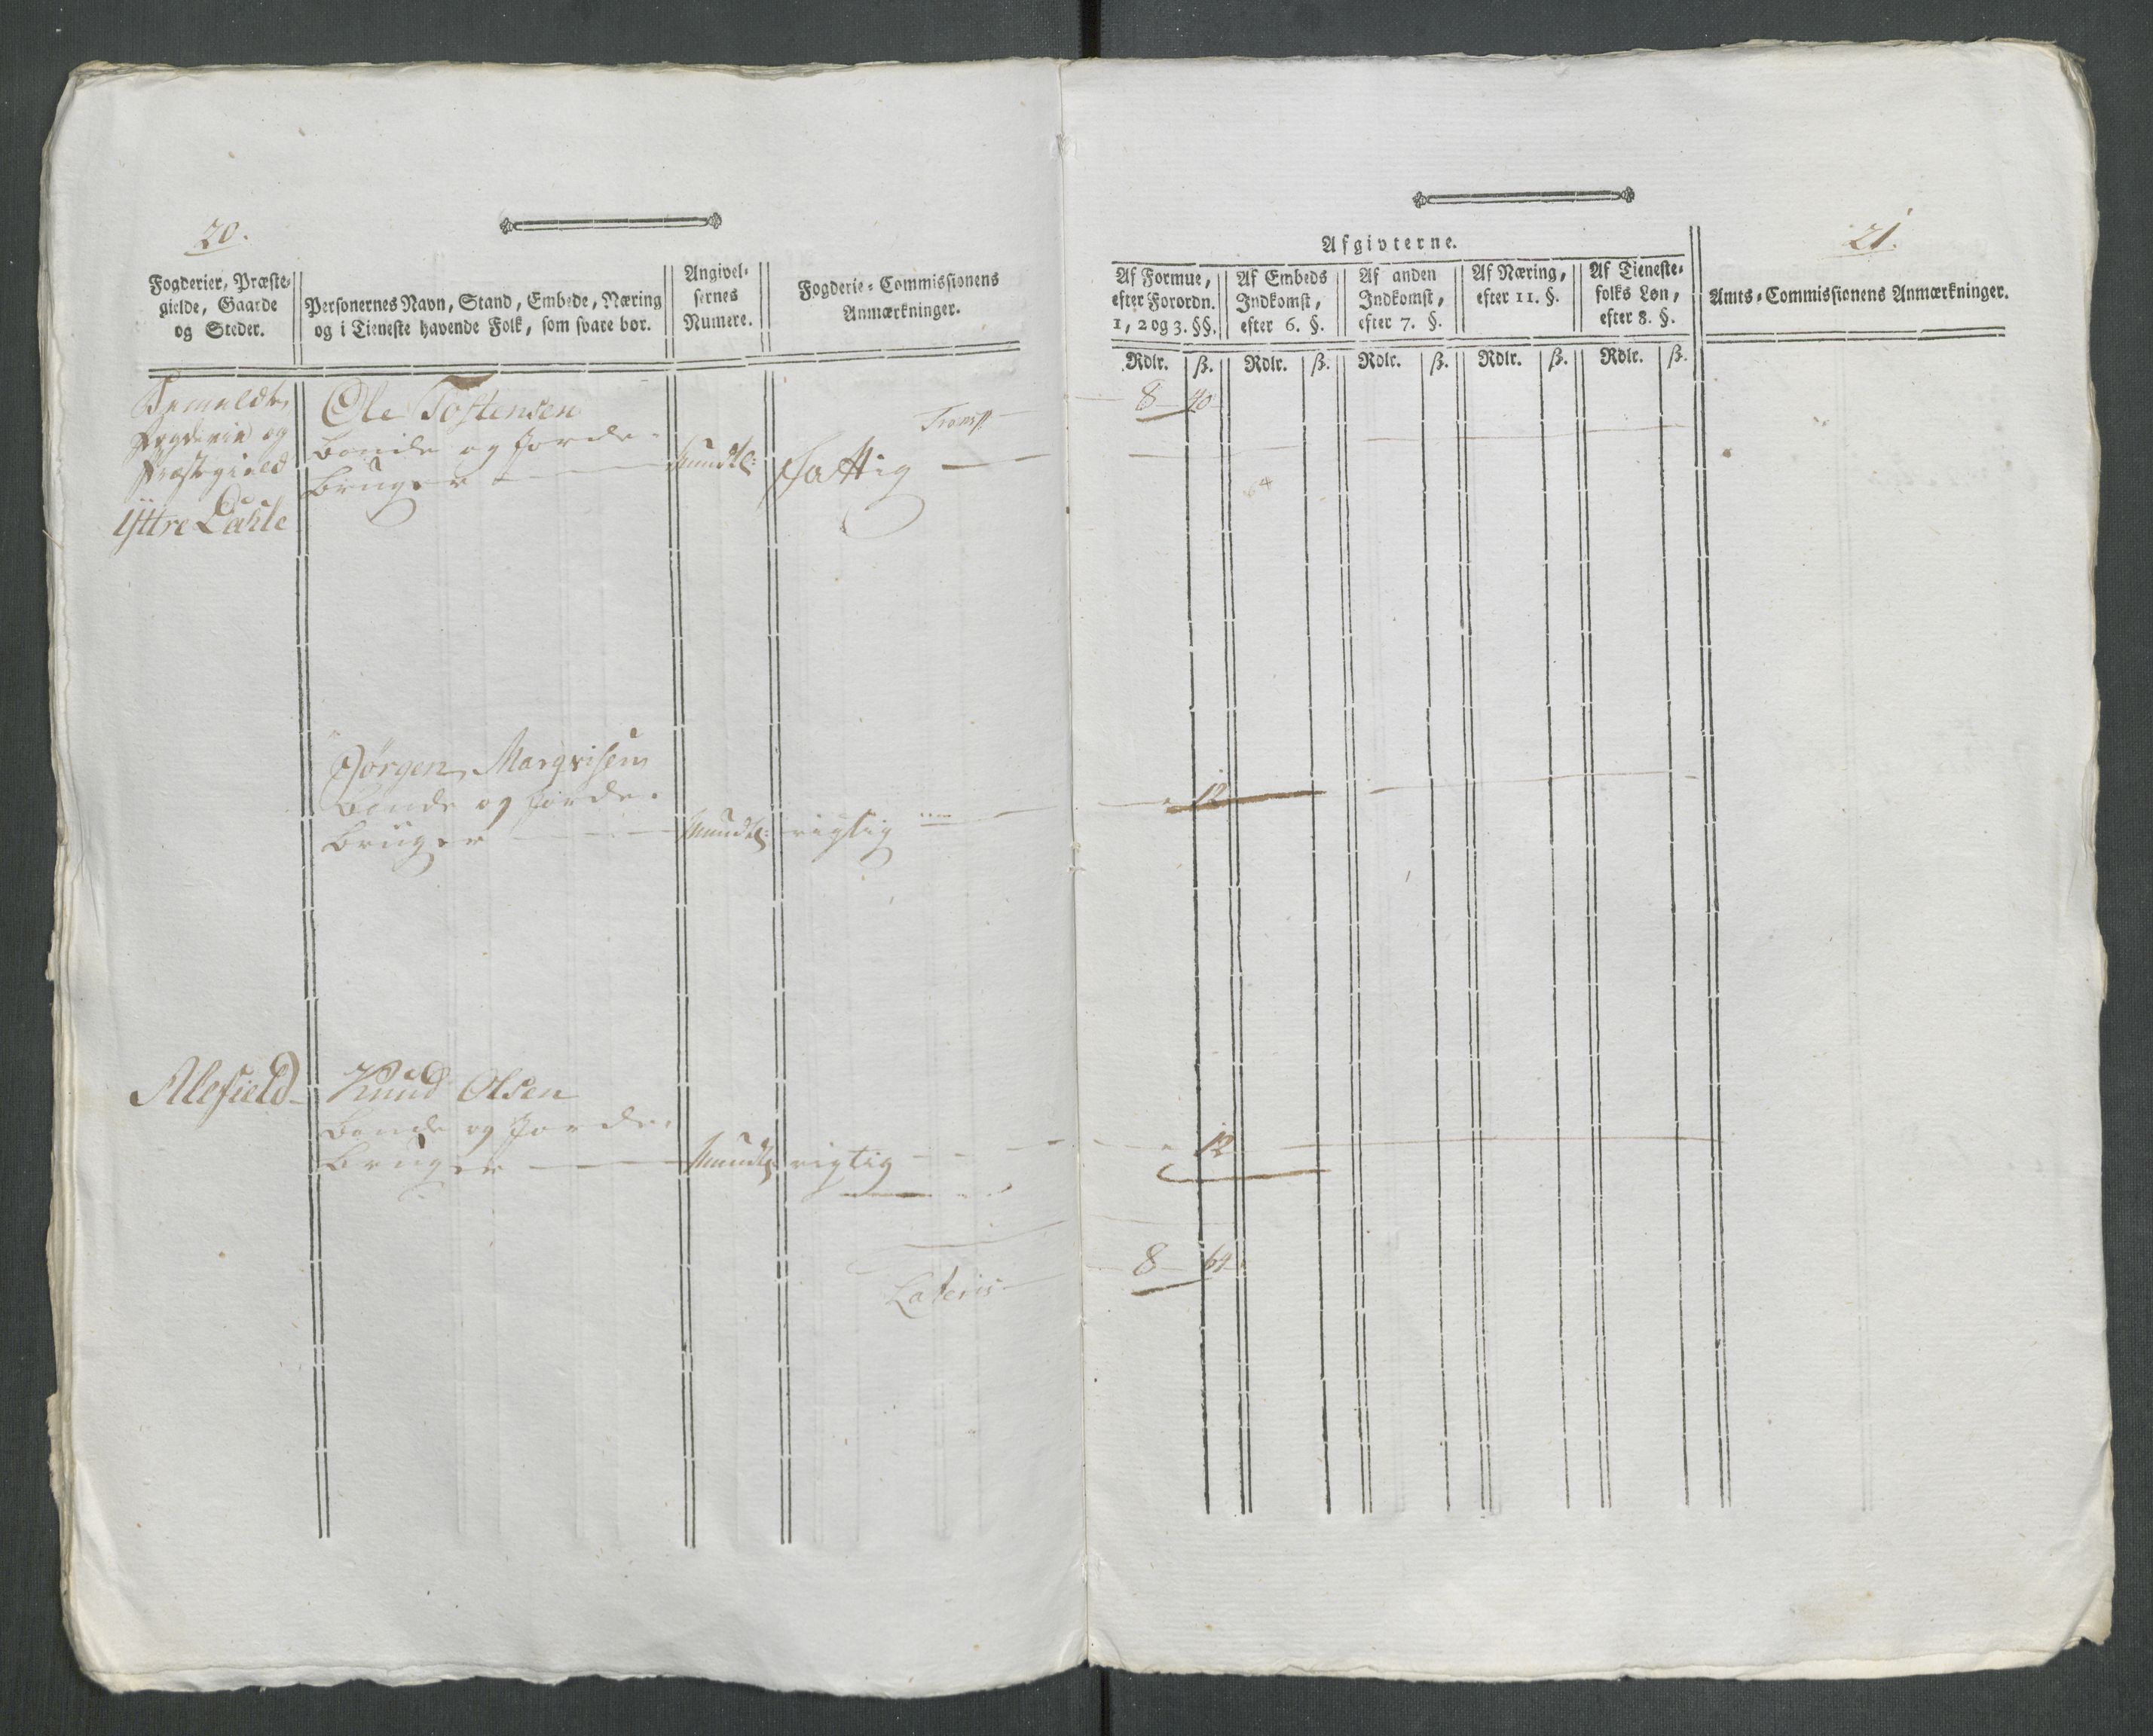 20.
Fogderier, Præste-
gielde, Gaarde
og Steder.
Personernes Navn, Stand, Embede, Næring
og i Tieneste havende Folk, som svare bør.
Angivel-
sernes
Numere.
Fogderie-Commissionens
Anmærkninger.
Bemeldte
Fogderie og
Præstegield
Yttre Dahle
Ole Tostensen
bonde og jorde-
bruger
mundtl:
Fattig
Transp
Jørgen Marqvisen
bonde og jorde-
bruger
mundtl:
rigtig
Alefield
Knud Olsen
bonde og jorde-
bruger
mundtl:
rigtig
Lateris
21.
Afgivterne.
Af Formue,
efter Forordn.
1, 2 og 3. §§.
Af Embeds
Indkomst,
efter 6. §.
Af anden
Indkomst,
efter 7. §.
Af Næring,
efter 11. §.
Af Tieneste-
folks Løn,
efter 8. §.
Amts-Commissionens Anmærkninger.
Rdlr. ß. Rdlr. ß. Rdlr. ß. Rdlr. ß. Rdlr. ß.
8 40
64
" 12
" 12
8 64